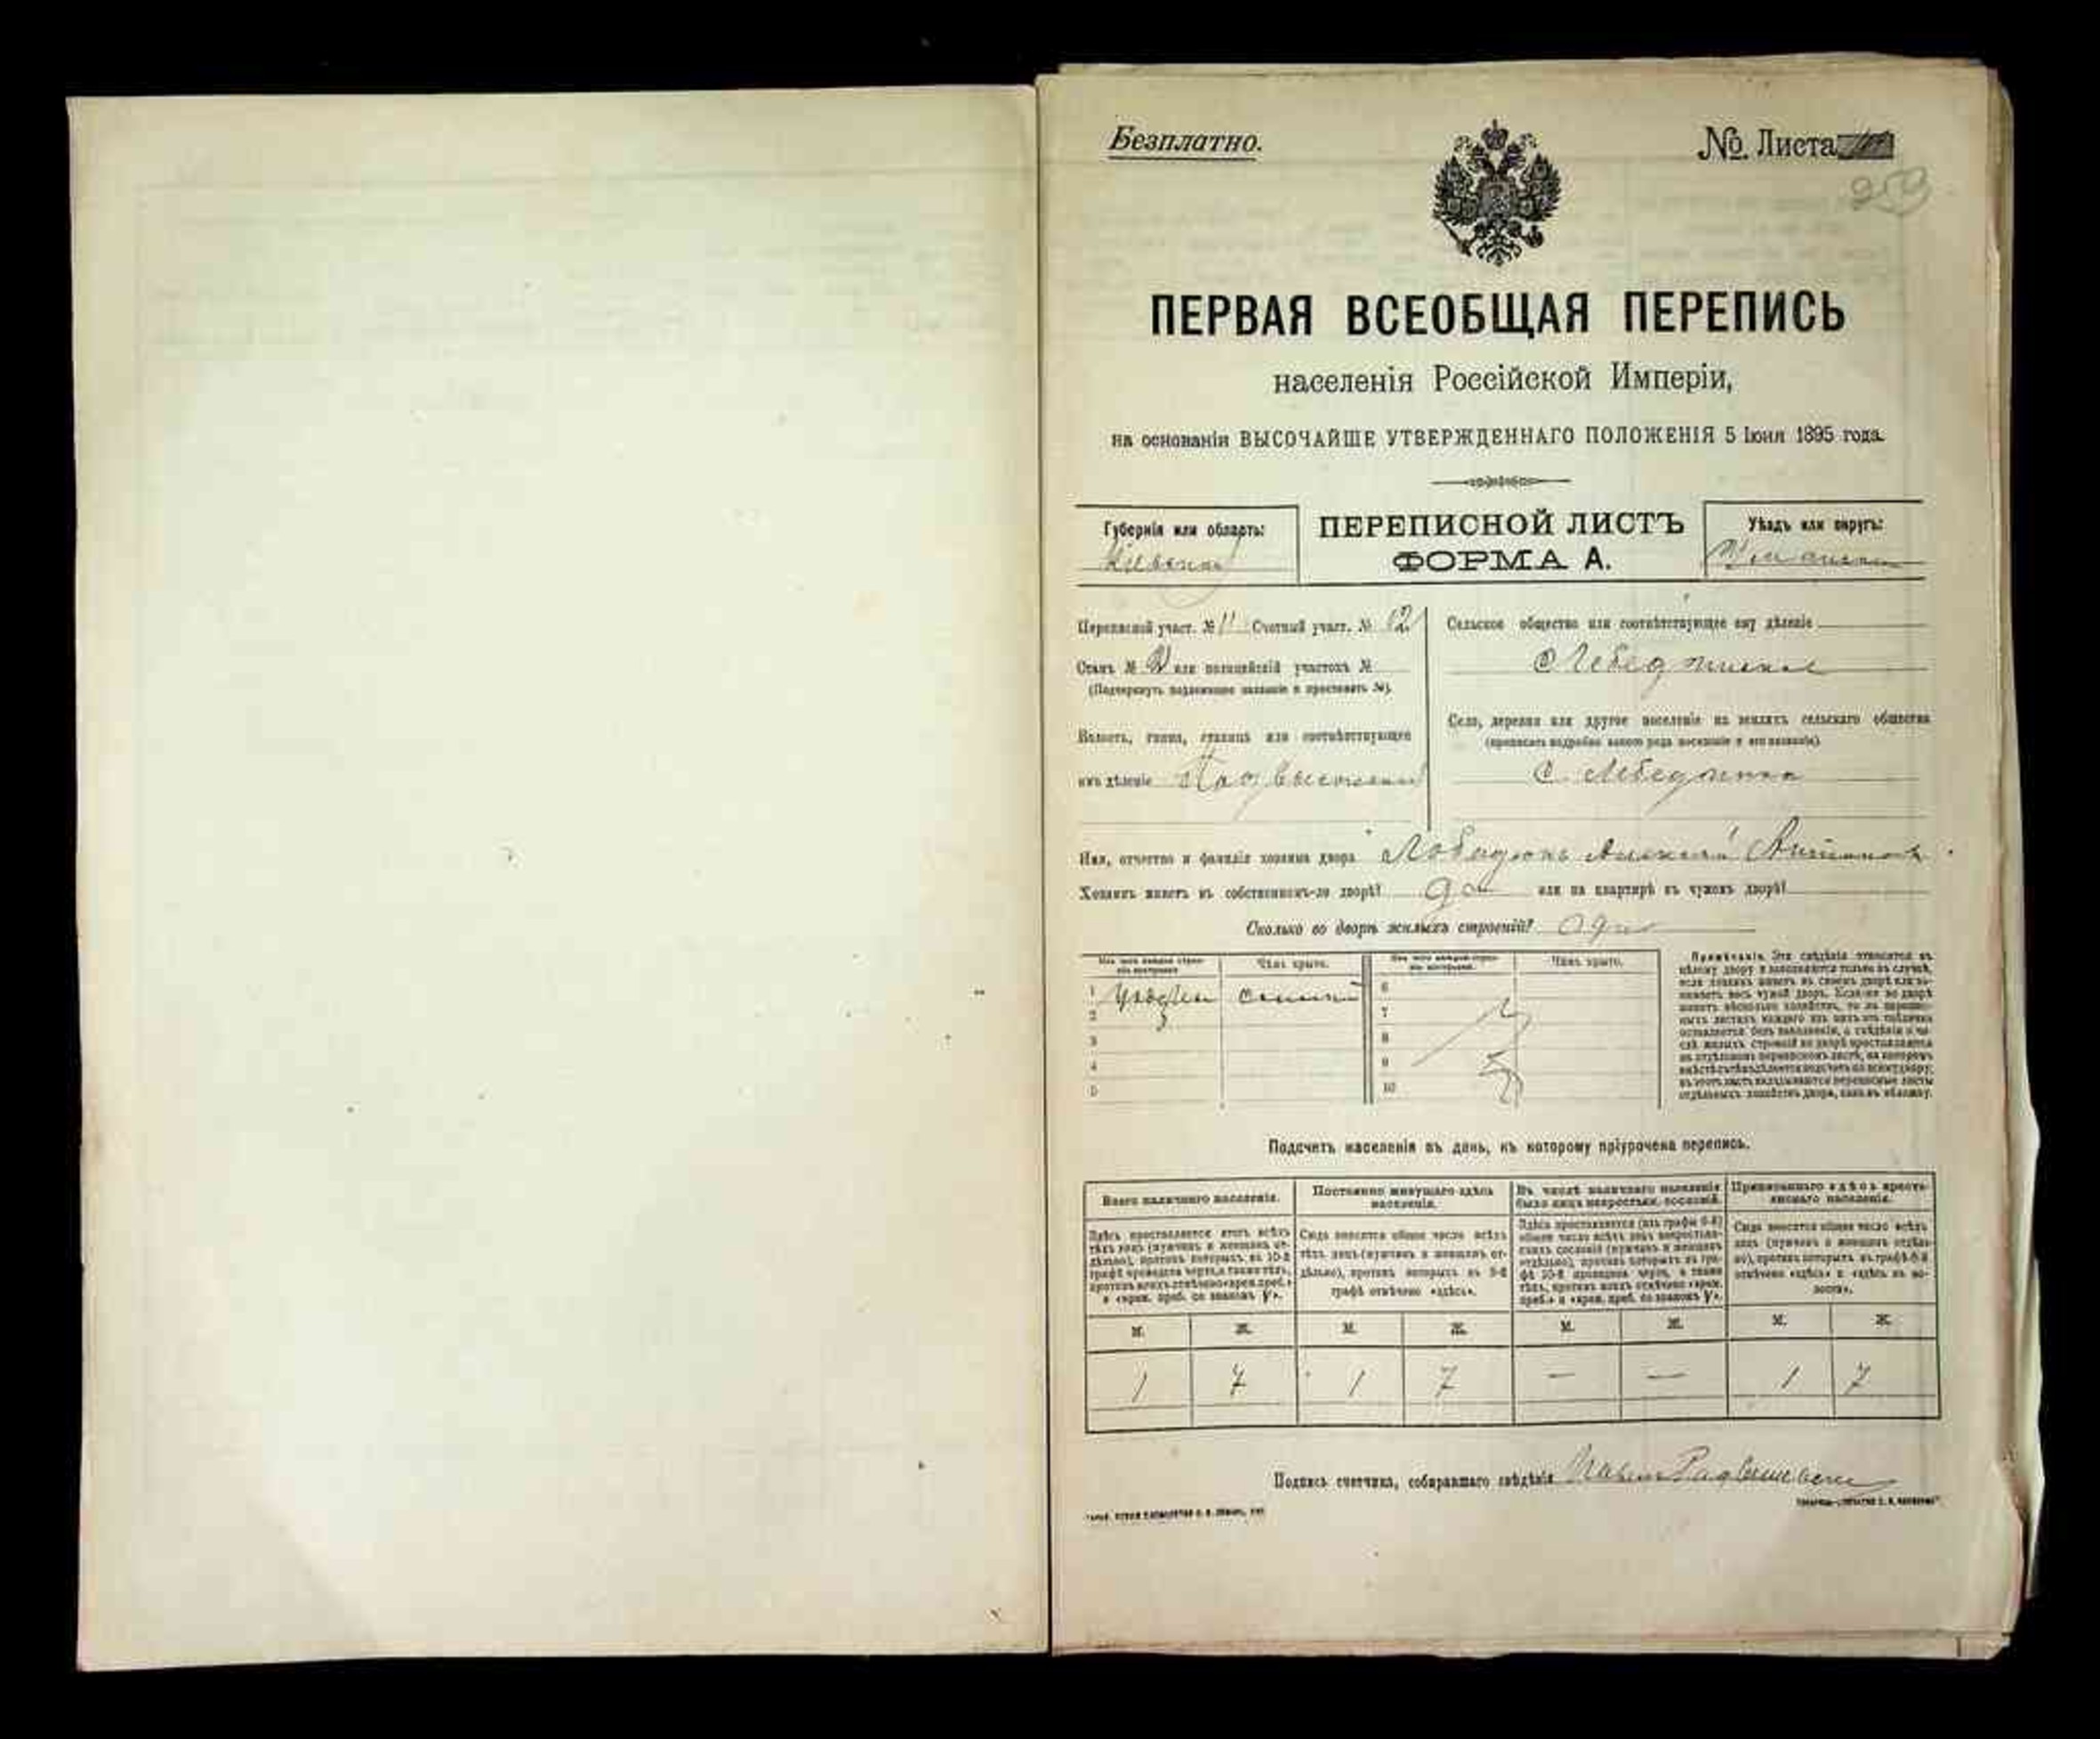 Безплатно.
№. Листа
259
ПЕРВАЯ ВСЕОБЩАЯ ПЕРЕПИСЬ
населенія Россійской Имперіи,
на основаніи ВЫСОЧАЙШЕ УТВЕРЖДЕННАГО ПОЛОЖЕНІЯ 5 Іюня 1895 года.
Губернія или область:
Кіевская
ПЕРЕПИСНОЙ ЛИСТЪ
ФОРМА А.
Уѣздъ или округъ:
Уманскій
Переписной участ. № 11 Счетный участ. № 12
Станъ № 2 или полицейскій участокъ №
(Подчеркнуть подлежащее названіе и проставить №).
Волость, гмина, станица или соотвѣтствующее
имъ дѣленіе
Сельское общество или соотвѣтствующее ему дѣленіе
Село, деревня или другое поселеніе на земляхъ сельскаго общества
(прописать подробно какого рода поселеніе и его названіе)
С.
Имя, отчество и фамилія хозяина двора Алексѣй
Хозяинъ живетъ въ собственномъ-ли дворѣ? да или на квартирѣ въ чужомъ дворѣ?
Сколько во дворѣ жилыхъ строеній? одно
Изъ чего каждое строеніе построено
Чѣмъ крыто.
Изъ чего каждое строеніе построено.
Чѣмъ крыто.
1
2
3
4
5
6
7
8
9
10
Примѣчаніе. Эти свѣдѣнія относятся къ
цѣлому двору и заполняются только въ случаѣ,
если хозяинъ живетъ въ своемъ дворѣ или за-
нимаетъ весь чужой дворъ. Если-же во дворѣ
живетъ нѣсколько хозяйствъ, то въ перепис-
ныхъ листахъ каждаго изъ нихъ эта табличка
оставляется безъ заполненія, а свѣдѣнія о чи-
слѣ жилыхъ строеній во дворѣ проставляются
на отдѣльномъ переписномъ листѣ, на которомъ
въ этотъ листъ вкладываются переписные листы
отдѣльныхъ хозяйствъ двора, какъ въ обложку.
Подсчетъ населенія въ день, къ которому пріурочена перепись.
Всего наличнаго населенія.
Постоянно живущаго здѣсь
населенія.
Въ числѣ наличнаго населенія
было лицъ некрестьян. сословій.
Приписаннаго здѣсь кресть-
янскаго населенія.
Здѣсь проставляется итогъ всѣхъ
тѣхъ лицъ (мужчинъ и женщинъ от-
дѣльно), противъ которыхъ въ 10-й
графѣ проведена черта, а также тѣхъ,
противъ коихъ отмѣчено «врем. преб.»
и «врем. преб. со знакомъ V».
Сюда вносится общее число всѣхъ
тѣхъ лицъ (мужчинъ и женщинъ от-
дѣльно), противъ которыхъ въ 9-й
графѣ отмѣчено «здѣсь».
Здѣсь проставляется (изъ графы 6-й)
общее число всѣхъ лицъ некрестьян-
скихъ сословій (мужчинъ и женщинъ
отдѣльно), противъ которыхъ въ гра-
фѣ 10-й проведена черта, а также
тѣхъ, противъ коихъ отмѣчено «врем.
преб.» и «врем. преб. со знакомъ V».
Сюда вносится общее число всѣхъ
лицъ (мужчинъ и женщинъ отдѣль-
но), противъ которыхъ въ графѣ 8-й
отмѣчено «здѣсь» и «здѣсь въ во-
лости».
М. Ж. М. Ж. М. Ж. М. Ж.
1 7 1 7 — — 1 7
Подпись счетчика, собиравшаго свѣдѣнія